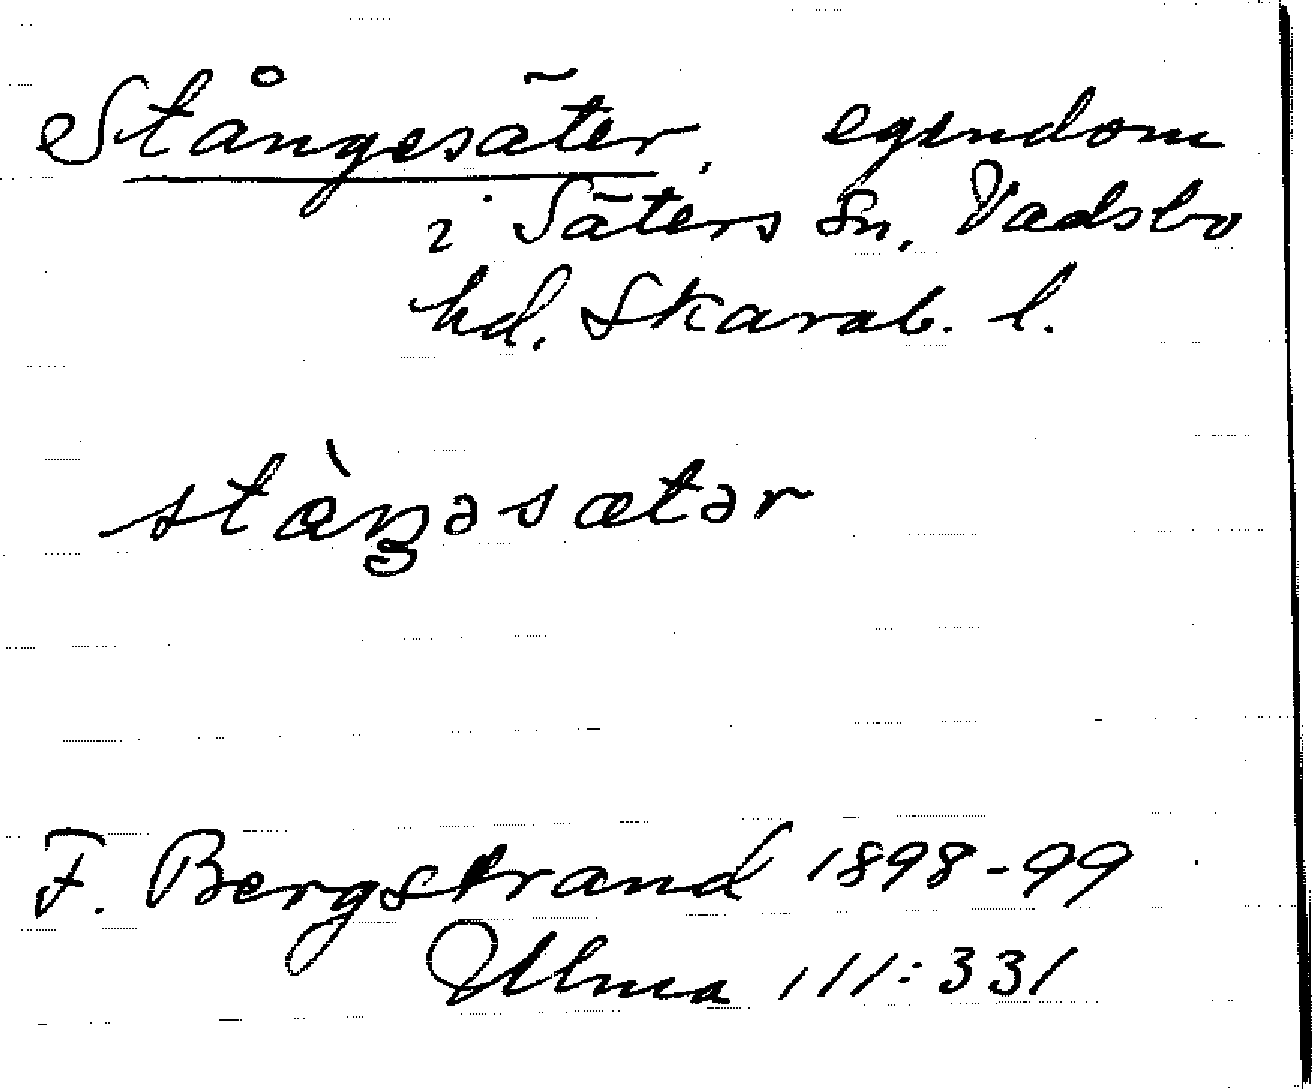 Stångesäter, egendom
i Säters sn, Vadsbo
hd. Skarab. l.
stàŋəsætər
F. Bergstrand 1898-99
Ulma 111:331